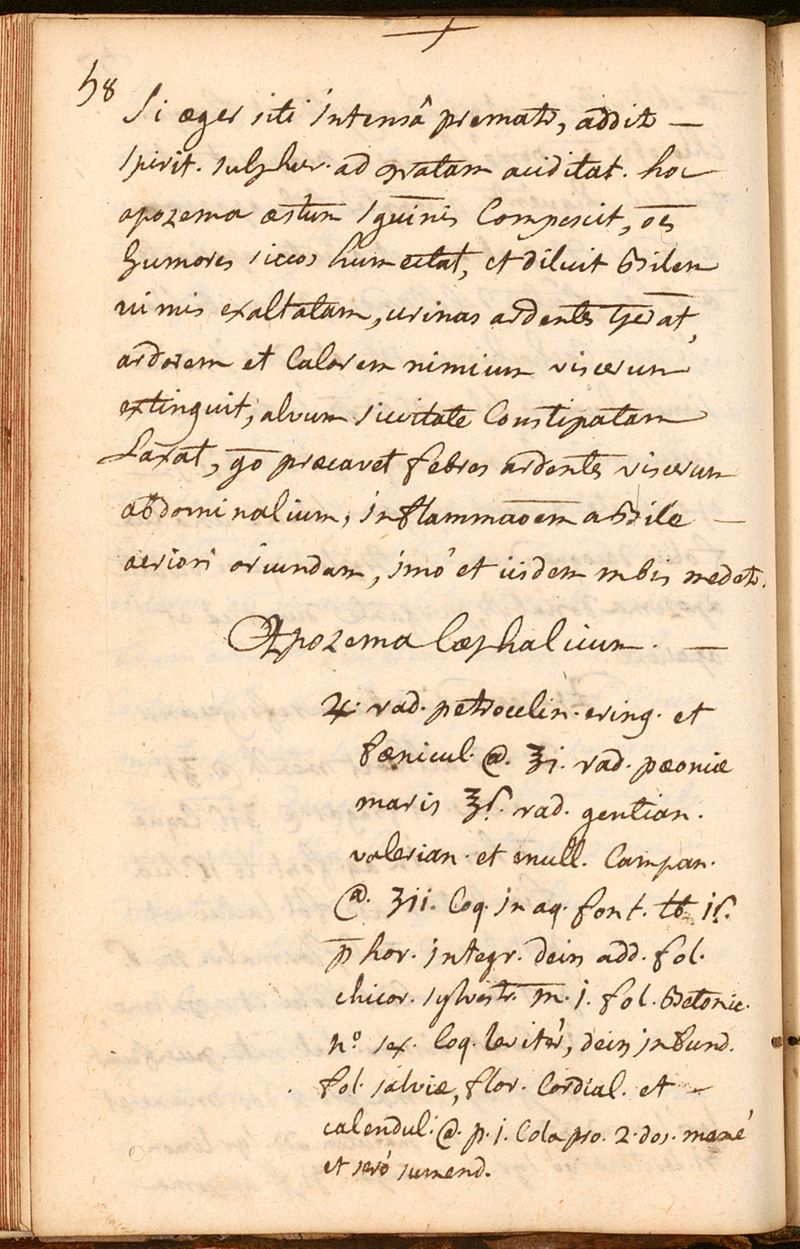 58
Si æger siti intensâ premat᷑, addit᷑ —
spirit. sulphur. ad gratam aciditat. hoc
apozema æstum sguinis Compescit, oēs
humores siccos humectat, et diluit Bilem
nimis exaltatam, urinas ardentes tp̄erat,
ardorem et Calorem nimium viscerum
extinguit, alvum siccitate Constipatam
Laxat, gō præcavet febres ardentes viscerum
abdominalium, inflammaōem a Bile —
acriori oriundam, imó et iisdem mbis medet᷑.
Apozema Cæphalicum. —
♃. rad. petrocelin. ering. et
fænicul. @. ʒi. rad. pæoniæ
maris ʒſ. rad. gentian.
valerian. et enull. Campan.
@. ʒii. Coq. in aq. font. lb iſ.
p̄ hor. integr. dein add. fol.
chicor. sylvestr. m. i. fol. Betonic.
nº sex. Coq. levitèr, dein infund.
fol. salviæ, flor. Cordial. et —
calendul. @. p. i. Cola pro. 2. dos. mané
et seró sumend.